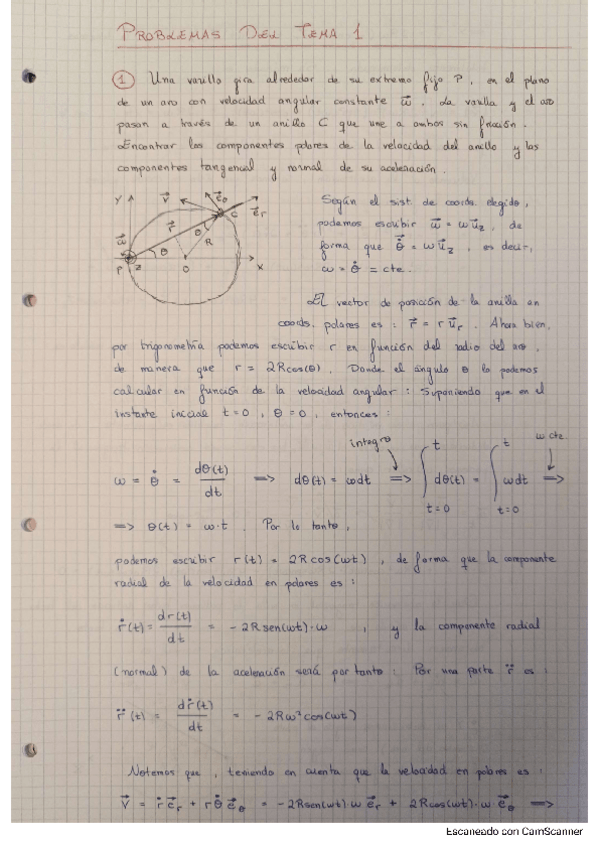 PROBLEMAS DEL TEMA 1
① Una varilla gira alrededor de su extremo fijo P, en el plano
de un aro con velocidad angular constante ω⃗. La varilla y el aro
pasan a través de un anillo C que une a ambos sin fricción.
Encontrar las componentes polares de la velocidad del anillo y las
componentes tangencial y normal de su aceleración.
Y V⃗ e⃗θ C e⃗r
r⃗ θ R
ω⃗ θ
P Z O X
Según el sist. de coords. elegido,
podemos escribir ω⃗ = ω u⃗z, de
forma que θ̇⃗ = ω u⃗z, es decir,
ω = θ̇ = cte.
El vector de posición de la anilla en
coords. polares es: r⃗ = r u⃗r. Ahora bien,
por trigonometría podemos escribir r en función del radio del aro,
de manera que r = 2Rcos(θ). Donde el ángulo θ lo podemos
calcular en función de la velocidad angular: Suponiendo que en el
instante inicial t=0, θ=0, entonces:
integro ω cte
ω = θ̇ = dθ(t)/dt => dθ(t) = ωdt => ∫_{t=0}^{t} dθ(t) = ∫_{t=0}^{t} ωdt =>
=> θ(t) = ω·t. Por lo tanto,
podemos escribir r(t) = 2Rcos(ωt), de forma que la componente
radial de la velocidad en polares es:
ṙ(t) = dr(t)/dt = -2Rsen(ωt)·ω, y la componente radial
(normal) de la aceleración será por tanto: Por una parte r̈ es:
r̈(t) = dṙ(t)/dt = -2Rω²cos(ωt)
Notemos que, teniendo en cuenta que la velocidad en polares es:
V⃗ = ṙ e⃗r + r θ̇ e⃗θ = -2Rsen(ωt)ω e⃗r + 2Rcos(ωt)·ω e⃗θ =>
Escaneado con CamScanner